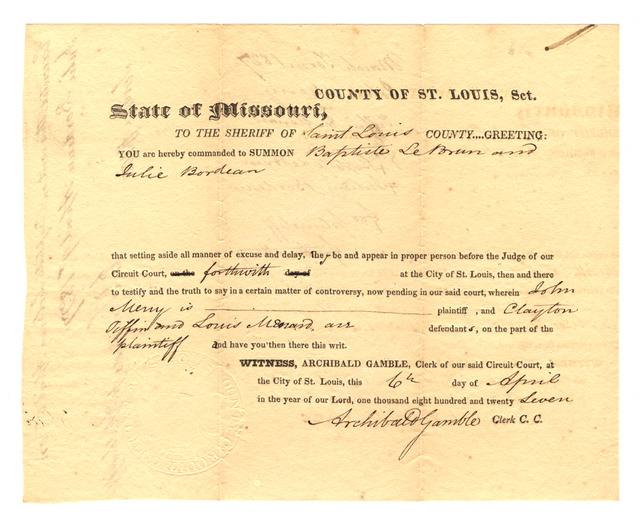 COUNTY OF ST. LOUIS, Sct.
State of Missouri,
TO THE SHERIFF OF Saint Louis COUNTY....GREETING:
YOU are hereby commanded to SUMMON Baptiste Le Brun and
Julie Bordeau
that setting aside all manner of excuse and delay, they be and appear in proper person before the Judge of our
Circuit Court, on the forthwith day of at the City of St. Louis, then and there
to testify and the truth to say in a certain matter of controversy, now pending in our said court, wherein John
Merry is plaintiff, and Clayton
Tiffin and Louis Menard are defendants, on the part of the
plaintiff and have you then there this writ.
WITNESS, ARCHIBALD GAMBLE, Clerk of our said Circuit Court, at
the City of St. Louis, this 6th day of April
in the year of our Lord, one thousand eight hundred and twenty seven
Archibald Gamble Clerk C. C.